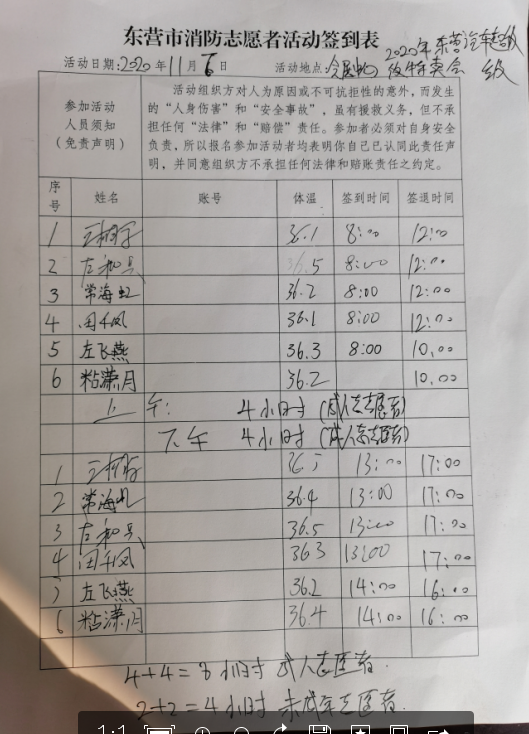 东营市消防志愿者活动签到表
2020年东营汽车超级
活动日期:2020年11月6日 活动地点: 特卖会
级
参加活动人员须知(免责声明)
活动组织方对人为原因或不可抗拒性的意外,而发生
的“人身伤害”和“安全事故”,虽有援救义务,但不承
担任何“法律”和“赔偿”责任。参加者必须对自身安全
负责,所以报名参加活动者均表明你自己已认同此责任声
明,并同意组织方不承担任何法律和赔账责任之约定。
序号 姓名 账号 体温 签到时间 签退时间
1 36.1 8:00 12:00
2 左和兵 36.5 8:00 12:00
3 常海虹 36.2 8:00 12:00
4 周千凤 36.1 8:00 12:00
5 左飞燕 36.3 8:00 10:00
6 粘潇月 36.2 10:00
上午: 4小时(成人志愿者)
下午 4小时(成人志愿者)
1 13:00 17:00
2 常海虹 36.4 13:00 17:00
3 左和兵 36.5 13:00 17:00
4 周千凤 363 13:00 17:00
5 左飞燕 36.2 14:00 16:00
6 粘潇月 36.4 14:00 16:00
4+4=8小时 成人志愿者.
2+2=4小时 未成年志愿者.
1:1